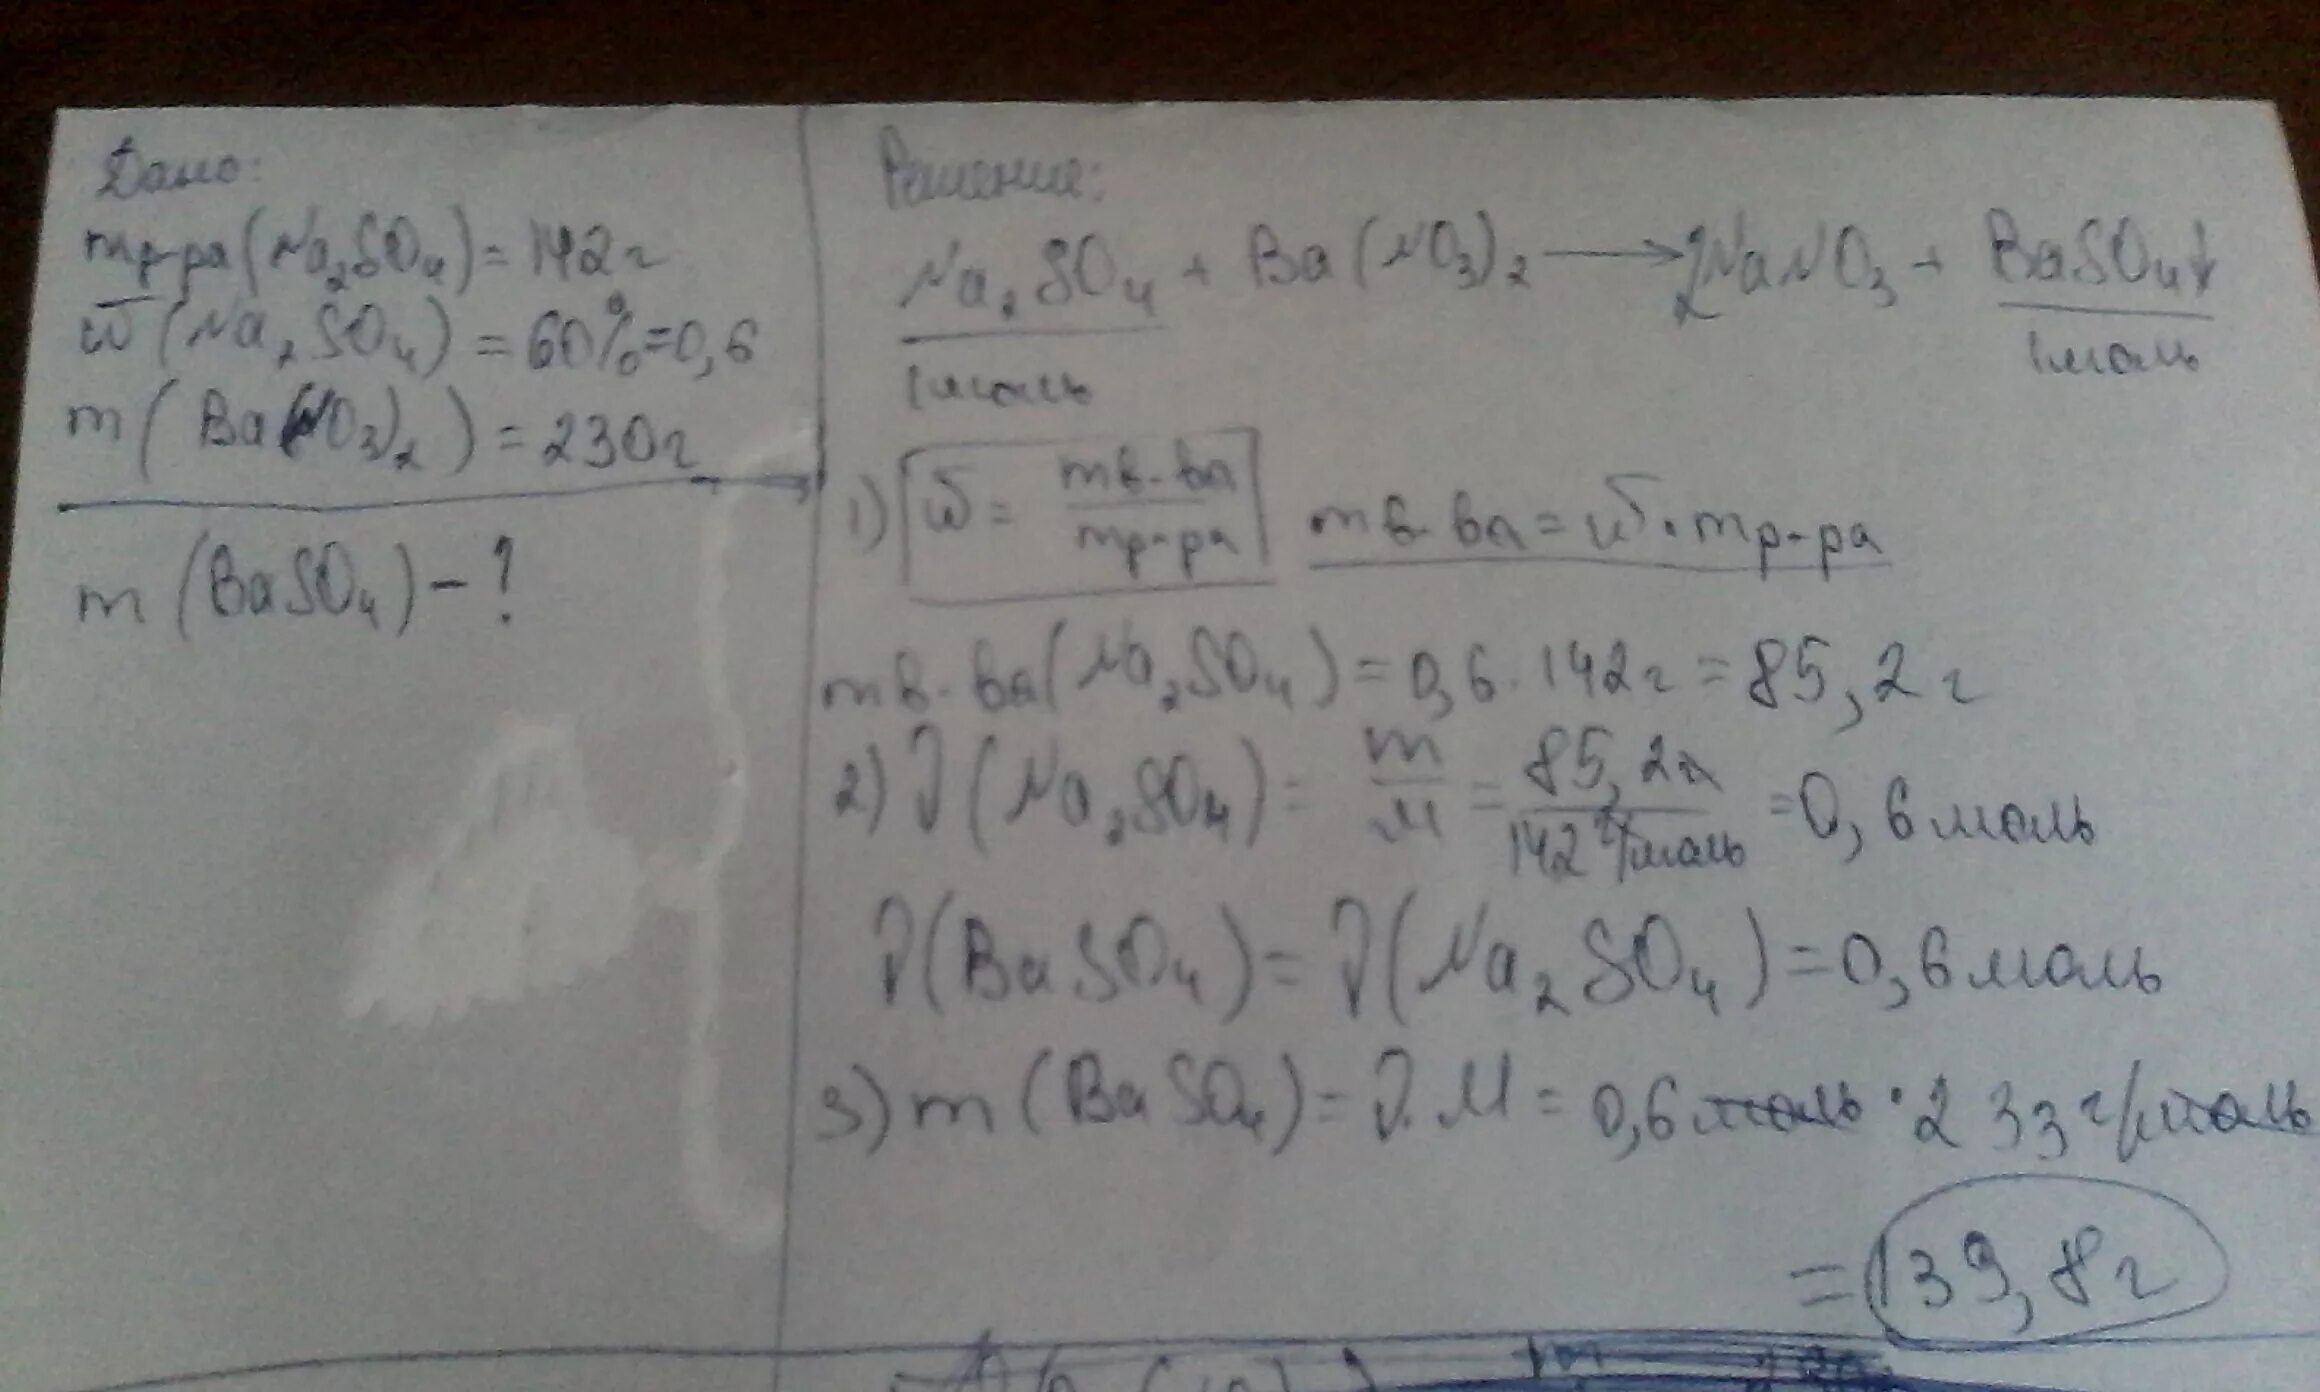 Дано:
mр-ра(Na₂SO₄) = 142г
ω(Na₂SO₄) = 60% = 0,6
m(Ba(NO₃)₂) = 230г
m(BaSO₄) - ?
Решение:
Na₂SO₄ + Ba(NO₃)₂ → 2NaNO₃ + BaSO₄↓
1моль 1моль
1) ω = mв-ва/mр-ра mв-ва = ω · mр-ра
mв-ва(Na₂SO₄) = 0,6 · 142г = 85,2г
2) ν(Na₂SO₄) = m/M = 85,2г/142г/моль = 0,6моль
ν(BaSO₄) = ν(Na₂SO₄) = 0,6моль
3) m(BaSO₄) = ν·M = 0,6моль · 233г/моль
= 139,8г